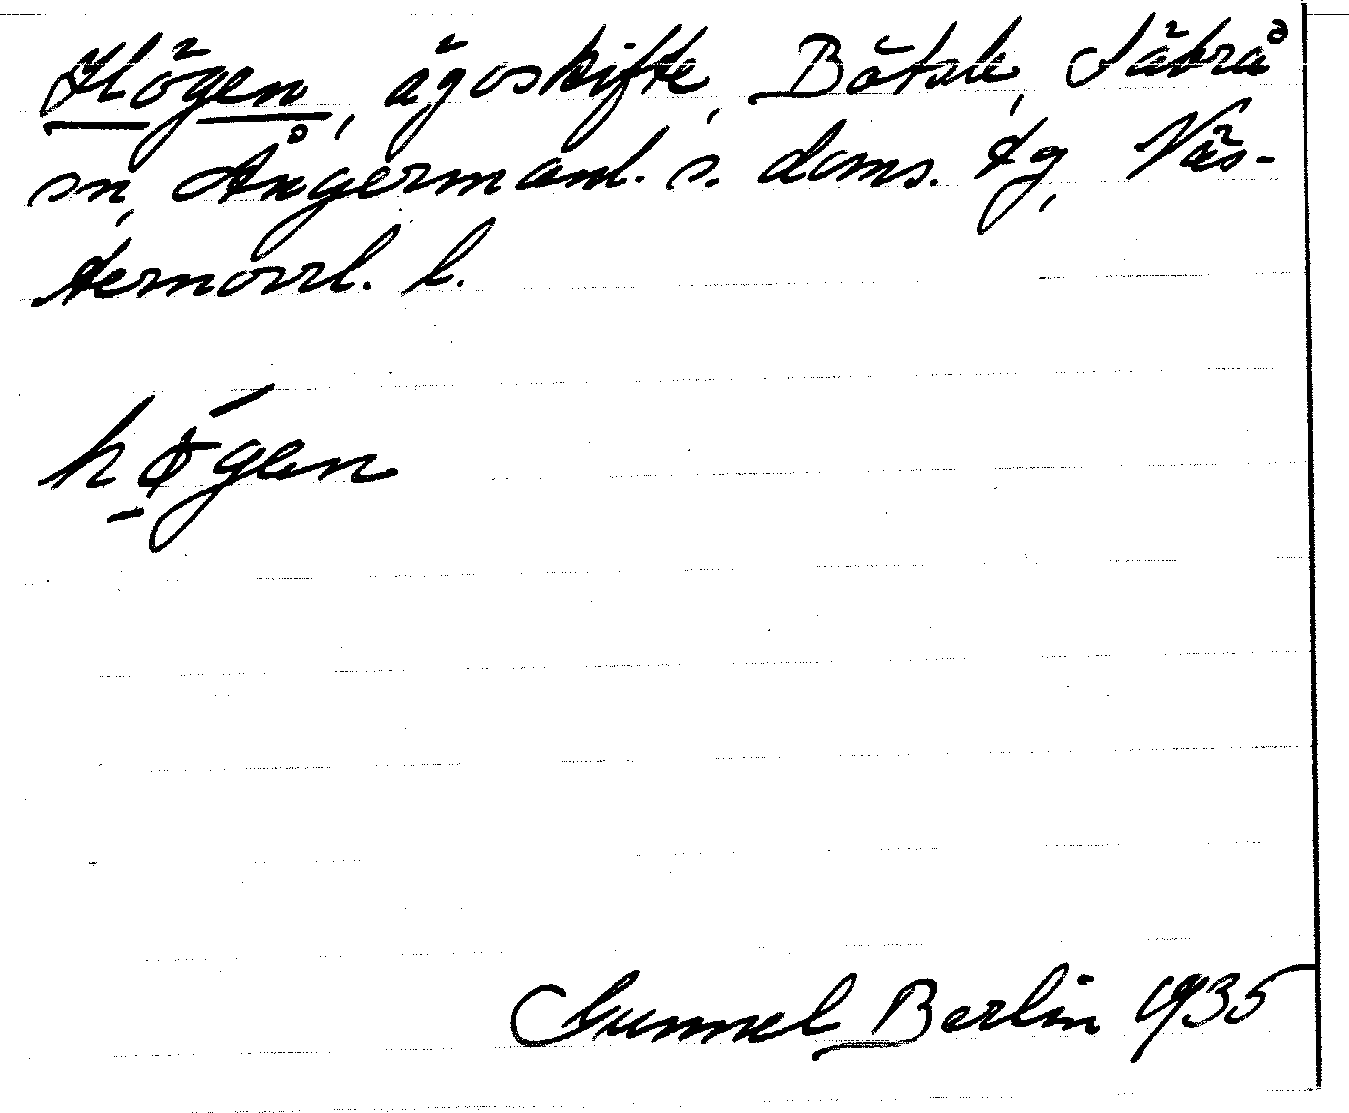 Högen, ägoskifte, Bätsle, Säbrå
sn, Ångermanl. s. doms. tg, Väs-
ternorrl. l.
hø̄gen
Gunnel Berlin 1935